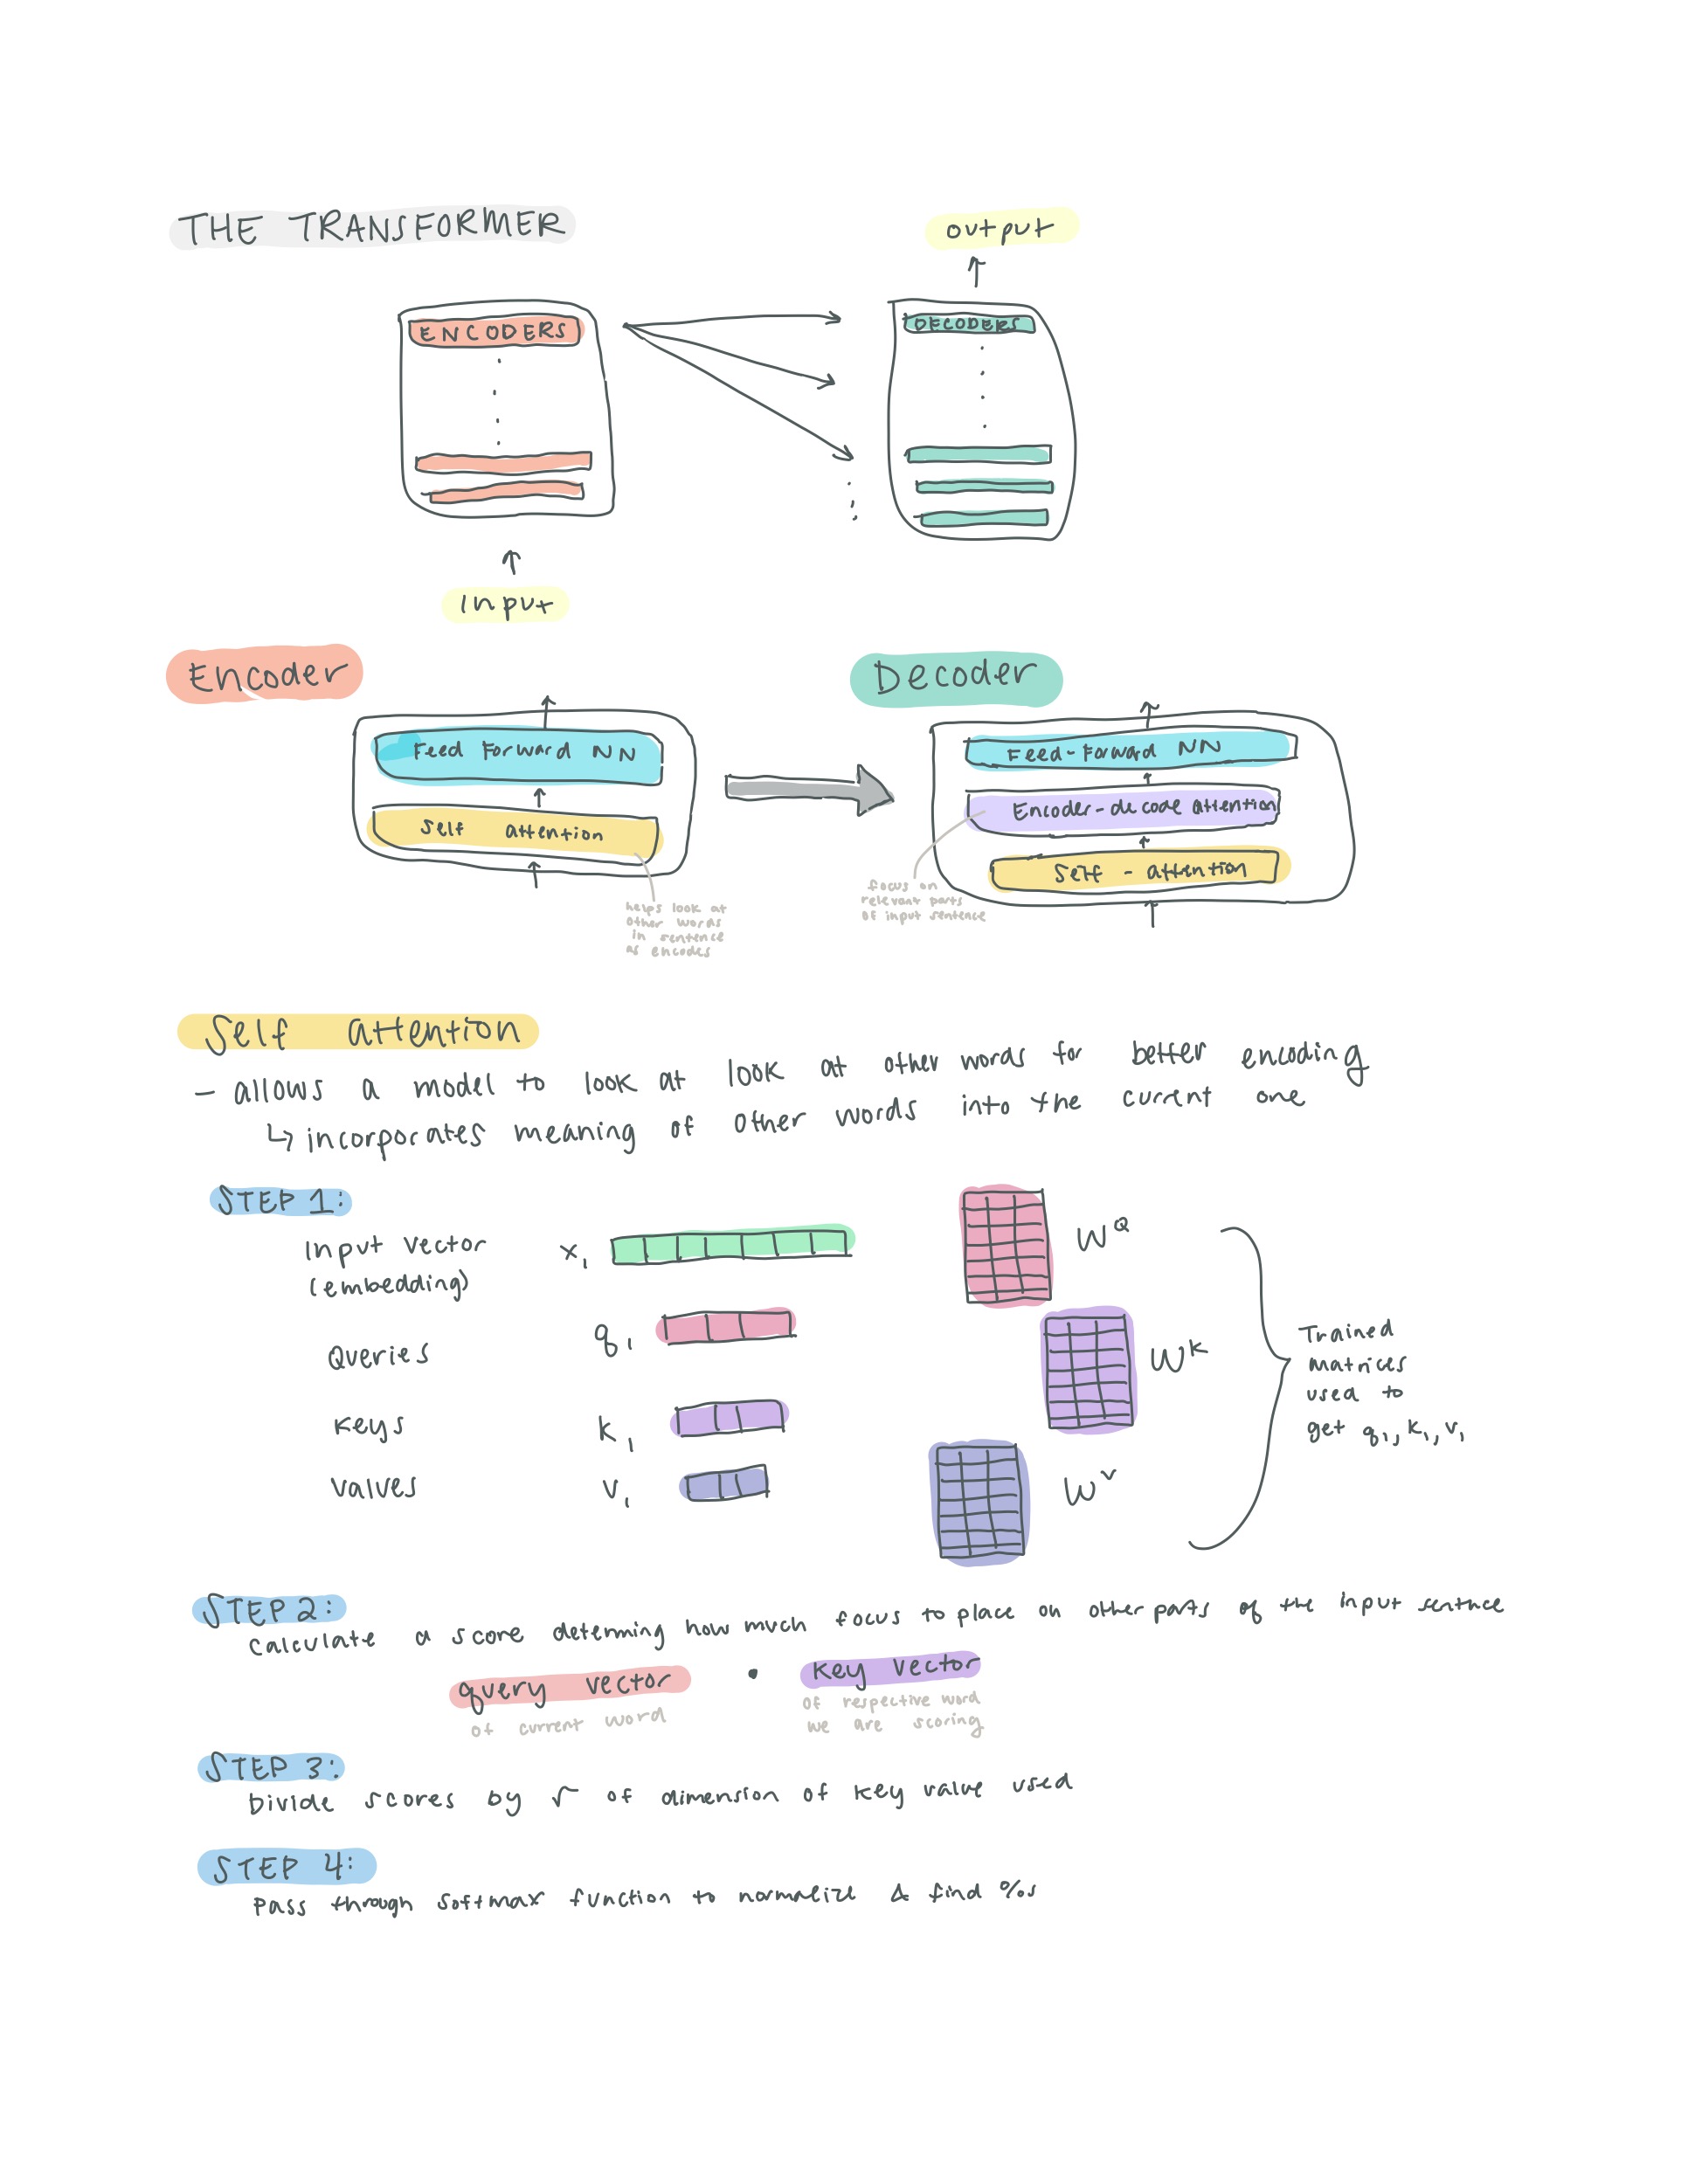 THE TRANSFORMER
output
ENCODERS
DECODERS
Input
Encoder
Decoder
Feed Forward NN
Self attention
helps look at
other words
in sentence
as encodes
Feed-Forward NN
Encoder-decode attention
Self-attention
focus on
relevant parts
of input sentence
Self attention
- allows a model to look at look at other words for better encoding
↳ incorporates meaning of other words into the current one
STEP 1:
Input vector
(embedding)
x₁
Queries
q₁
Keys
k₁
Values
v₁
W^Q
W^K
W^V
Trained
matrices
used to
get q₁, k₁, v₁
STEP 2:
Calculate a score determing how much focus to place on other parts of the input sentnce
query vector • key vector
of current word
of respective word
we are scoring
STEP 3:
Divide scores by √ of dimension of key value used
STEP 4:
Pass through softmax function to normalize & find %s